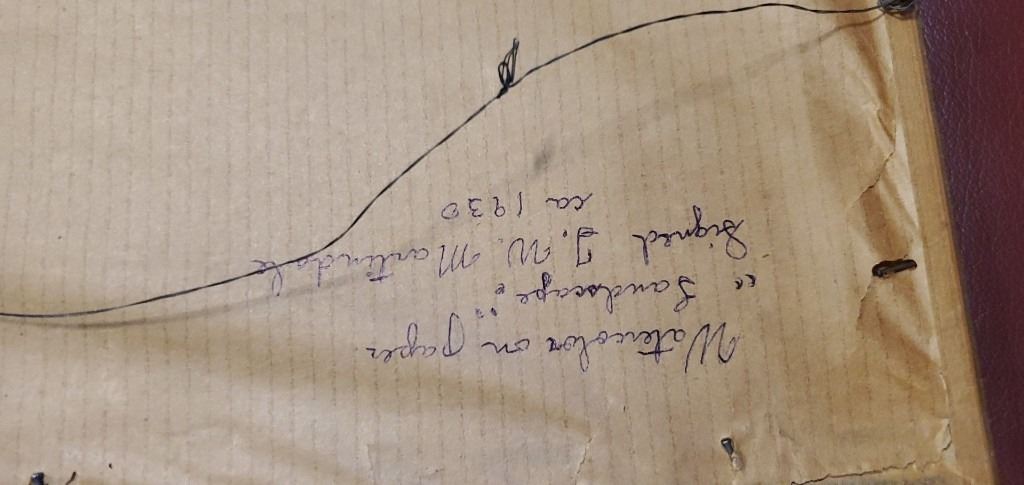 Watercolor on paper
"Landscape"
Signed J. W. Martindale
ca 1930